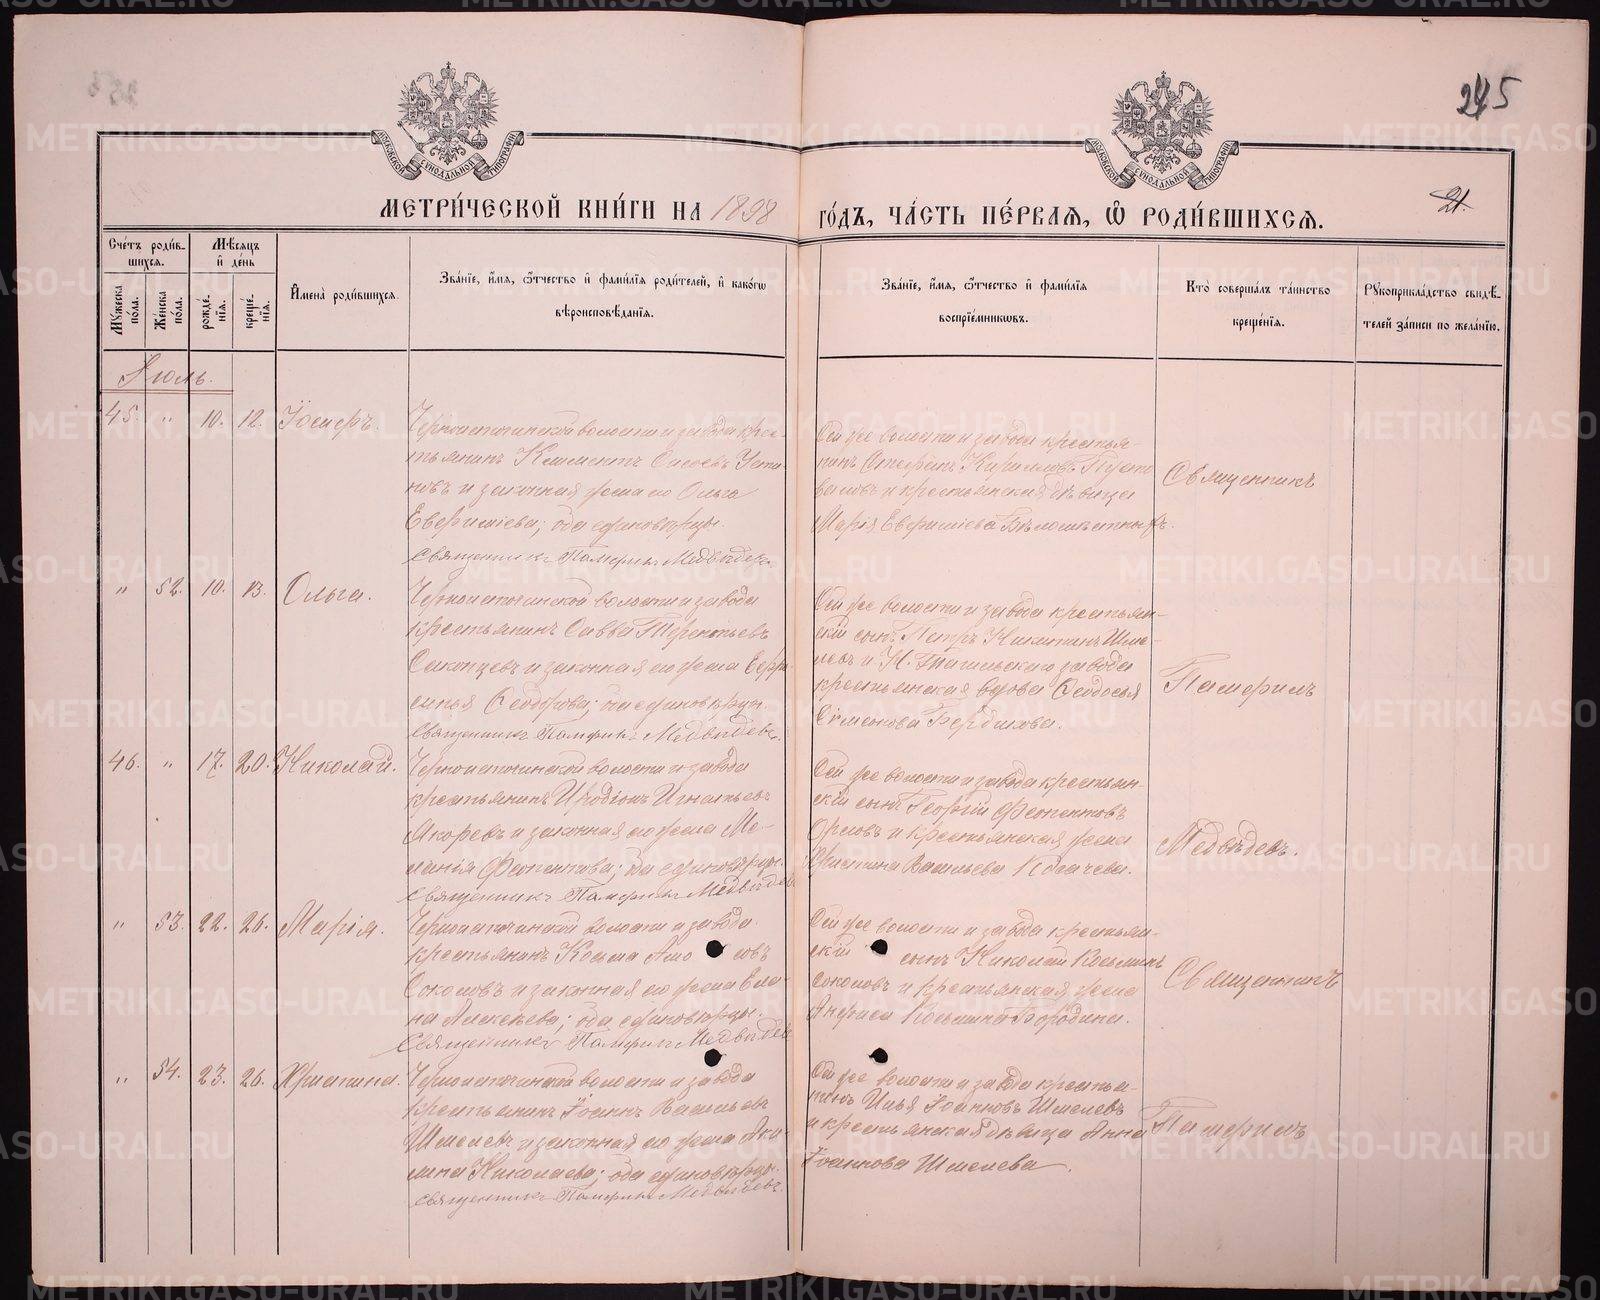 245
21.
МОСКОВСКОЙ СУНОДАЛЬНОЙ ТИПОГРАФИИ
МОСКОВСКОЙ СУНОДАЛЬНОЙ ТИПОГРАФИИ
МЕТРИ́ЧЕСКОЙ КНИ́ГИ НА 1898 ГО́ДЪ, ЧА́СТЬ ПЕ́РВАЯ, Ѽ РОДИ́ВШИХСЯ.
Сче́тъ роди́в-
шихся.
Мꙋжеска по́ла.
Же́нска по́ла.
Мѣ́сяцъ
и҆ де́нь
рожде́-
нїя.
креще́-
нїя.
И҆мена̀ роди́вшихся.
Зва́нїе, и҆́мя, ѻ҆́тчество и҆ фами́лїя роди́телей, и҆ како́гѡ
вѣроисповѣ́данїя.
Зва́нїе, и҆́мя, ѻ҆́тчество и҆ фами́лїя
воспрїе́мникѡвъ.
Кто̀ соверша́лъ та́инство
креще́нїя.
Рꙋкоприкла́дство свидѣ́-
телей за́писи по жела́нїю.
Іюль.
45. " 10. 12. Іосифъ.
Черноисточинской волости и завода крес-
тьянинъ Климентъ Сысоевъ Усти-
новъ и законная жена его Ольга
Евфимієва; оба единовѣрцы.
Священникъ Памфилъ Медвѣдевъ.
Той же волости и завода крестья-
нинъ Стефанъ Кирилловъ Пусто
валовъ и крестьянская дѣвица
Марія Евфимієва Бѣлошкетныхъ.
Священникъ
" 52. 10. 13. Ольга.
Черноисточинской волости и завода
крестьянинъ Савва Терентьевъ
Саканцевъ и законная его жена Евфи
симья Ѳедорова; оба единовѣрцы.
Священникъ Памфилъ Медвѣдевъ.
Той же волости и завода крестьян-
скій сынъ Петръ Никитинъ Шме-
левъ и Н. Тагильскаго завода
крестьянская вдова Ѳеодосья
Симеонова Бердникова.
Памфилъ
46. " 17. 20. Николай.
Черноисточинской волости и завода
крестьянинъ Иродіонъ Игнатьевъ
Якоревъ и законная его жена Ме-
ланія Феопентова; оба единовѣрцы.
Священникъ Памфилъ Медвѣдевъ
Той же волости и завода крестьян-
скій сынъ Георгій Феопентовъ
Орловъ и крестьянская жена
Христина Васильева Кодачева.
Медвѣдевъ.
" 53. 22. 26. Марія.
Черноисточинской волости и завода
крестьянинъ Косьма Амо совъ
Соколовъ и законная его жена Еле-
на Алексѣева; оба единовѣрцы.
Священникъ Памфилъ Медвѣдевъ
Той же волости и завода крестьян-
скій сынъ Николай Косьминъ
Соколовъ и крестьянская жена
Анфиса Косьмина Бородина.
Священникъ
" 54. 23. 26. Христина.
Черноисточинской волости и завода
крестьянинъ Іоаннъ Васильевъ
Шмелевъ и законная его жена Аки-
лина Николаева; оба единовѣрцы.
Священникъ Памфилъ Медвѣдевъ.
Той же волости и завода крестья-
нинъ Илья Іоанновъ Шмелевъ
и крестьянская дѣвица Анна
Іоаннова Шмелева.
Памфилъ
METRIKI.GASO-URAL.RU